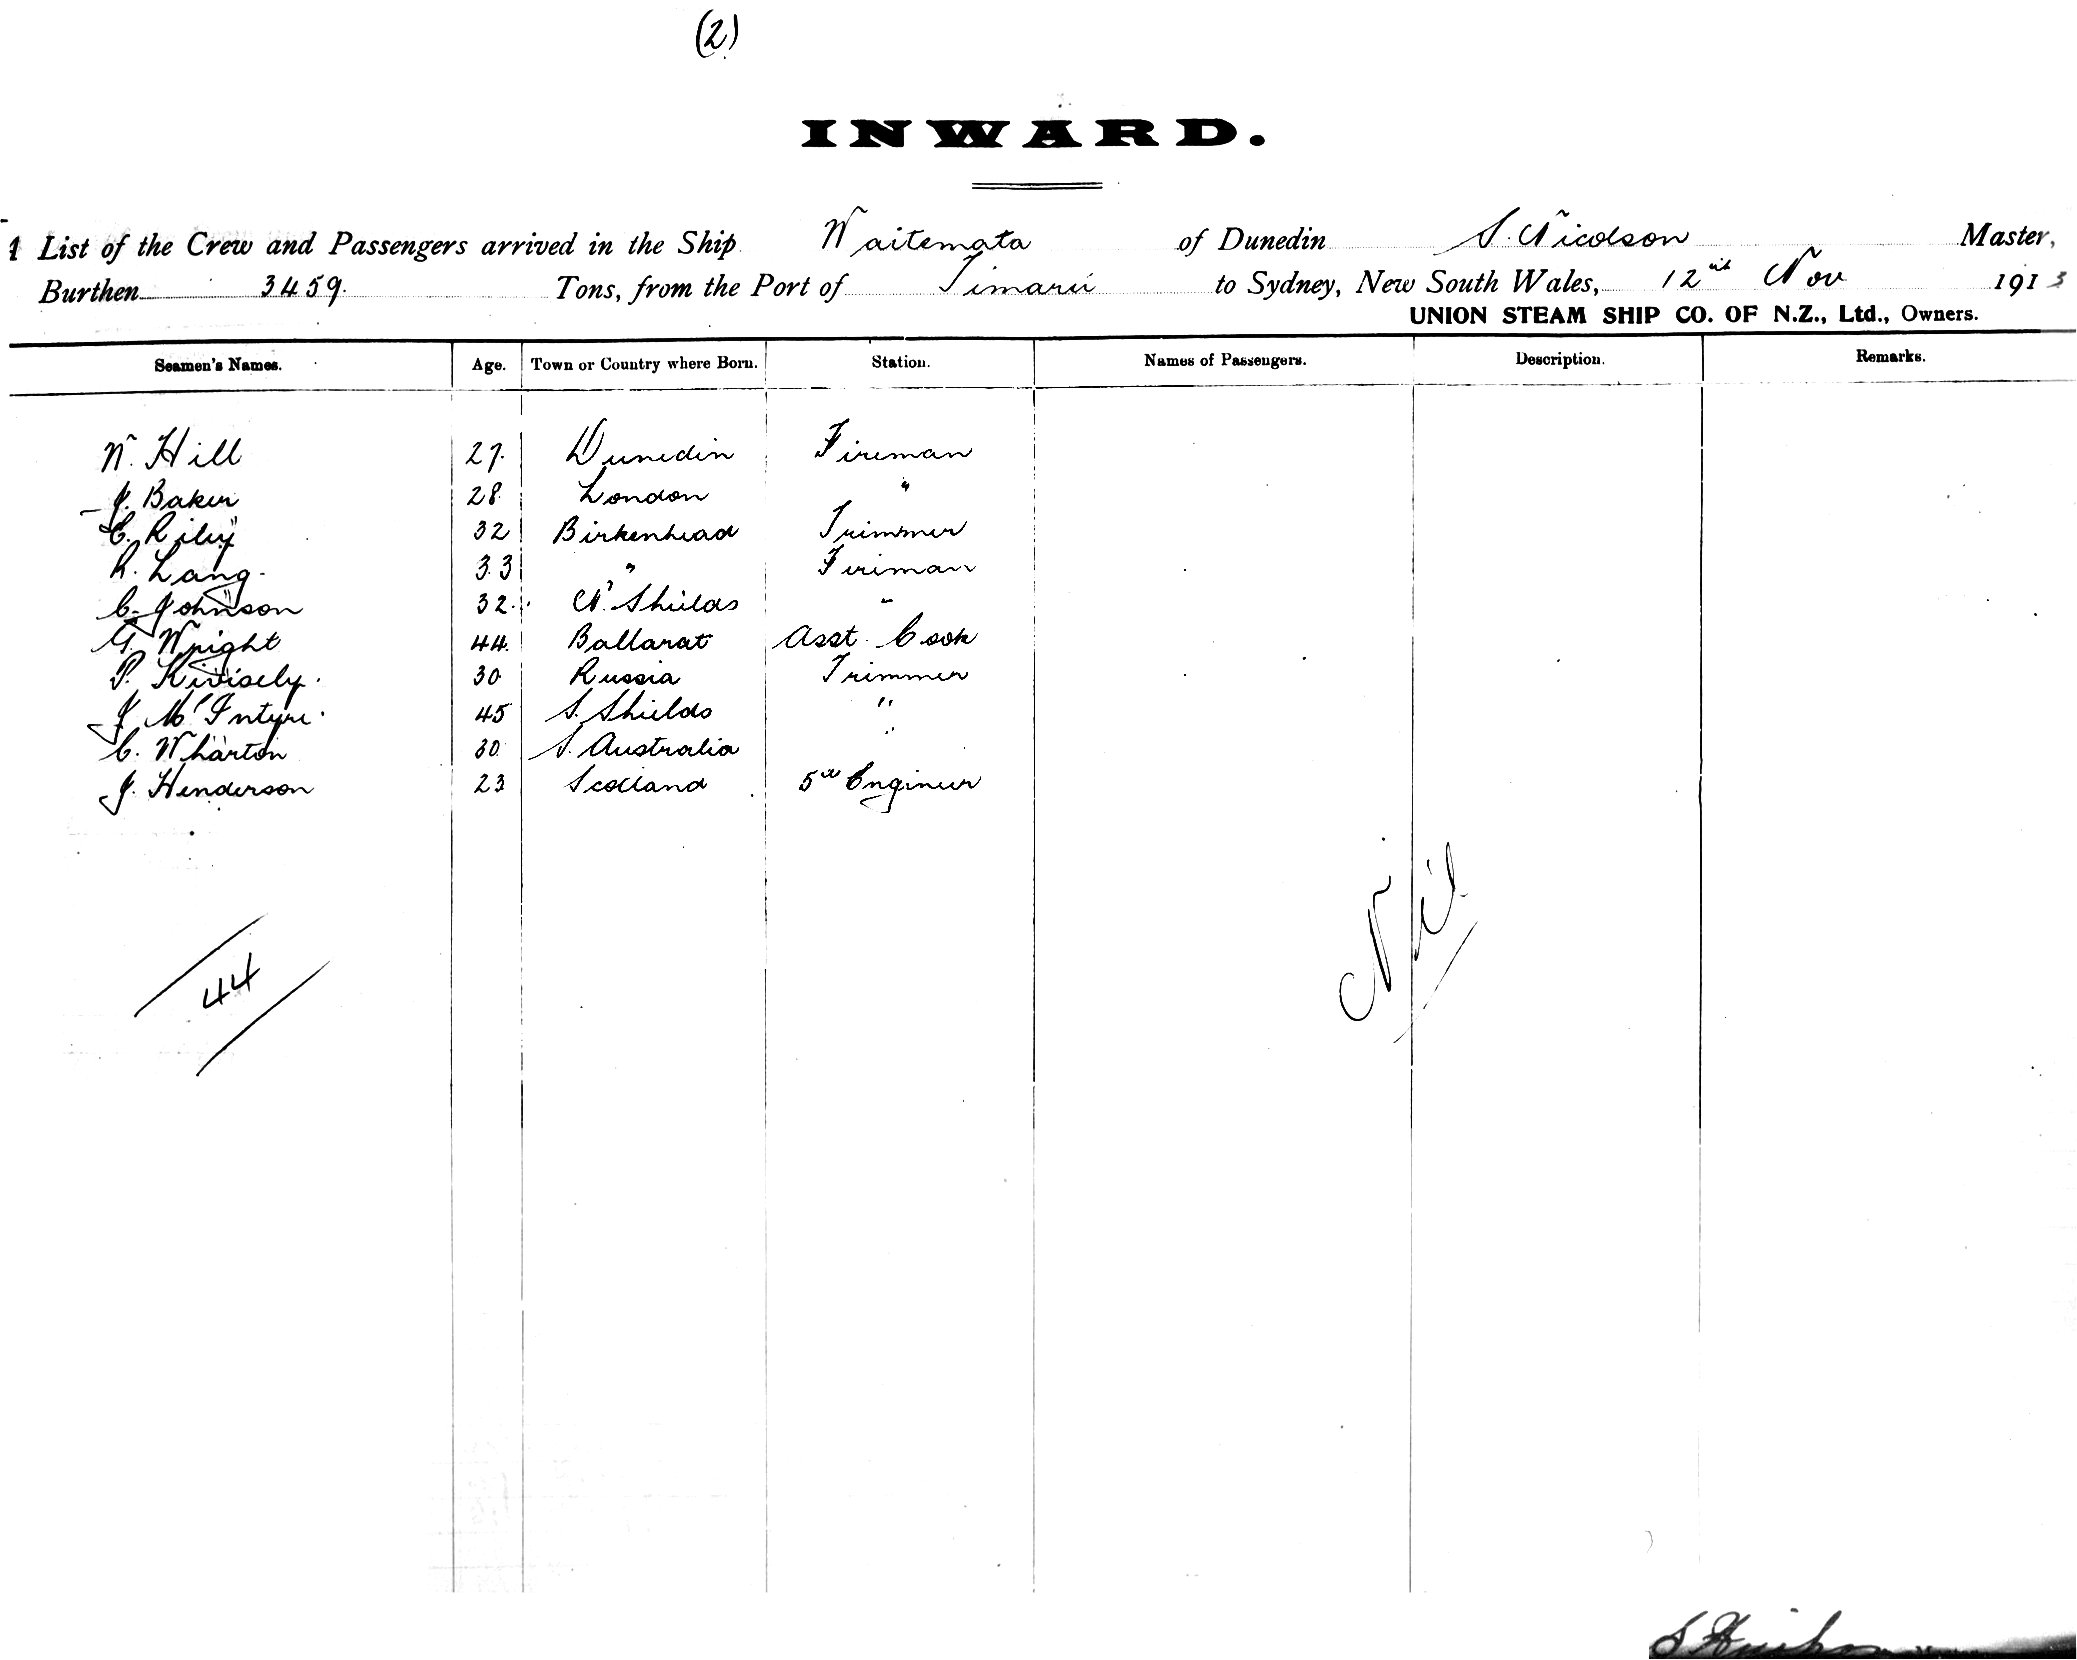 (2)
INWARD.
A List of the Crew and Passengers arrived in the Ship Waitemata of Dunedin S. Nicolson Master,
Burthen 3459. Tons, from the Port of Timaru to Sydney, New South Wales, 12th Nov 1913
UNION STEAM SHIP CO. OF N.Z., Ltd., Owners.
Seamen's Names. Age. Town or Country where Born. Station. Names of Passengers. Description. Remarks.
W. Hill 27. Dunedin Fireman
J. Baker 28 London "
C. Riley 32 Birkenhead Trimmer
R. Lang. 33 " Fireman
C. Johnson 32. N. Shields "
G. Wright 44. Ballarat Asst Cook
P. Kivisely. 30 Russia Trimmer
J. McIntyre. 45 S. Shields "
C. Wharton 30 S. Australia "
J. Henderson 23 Scotland 5th Engineer
Nil
44